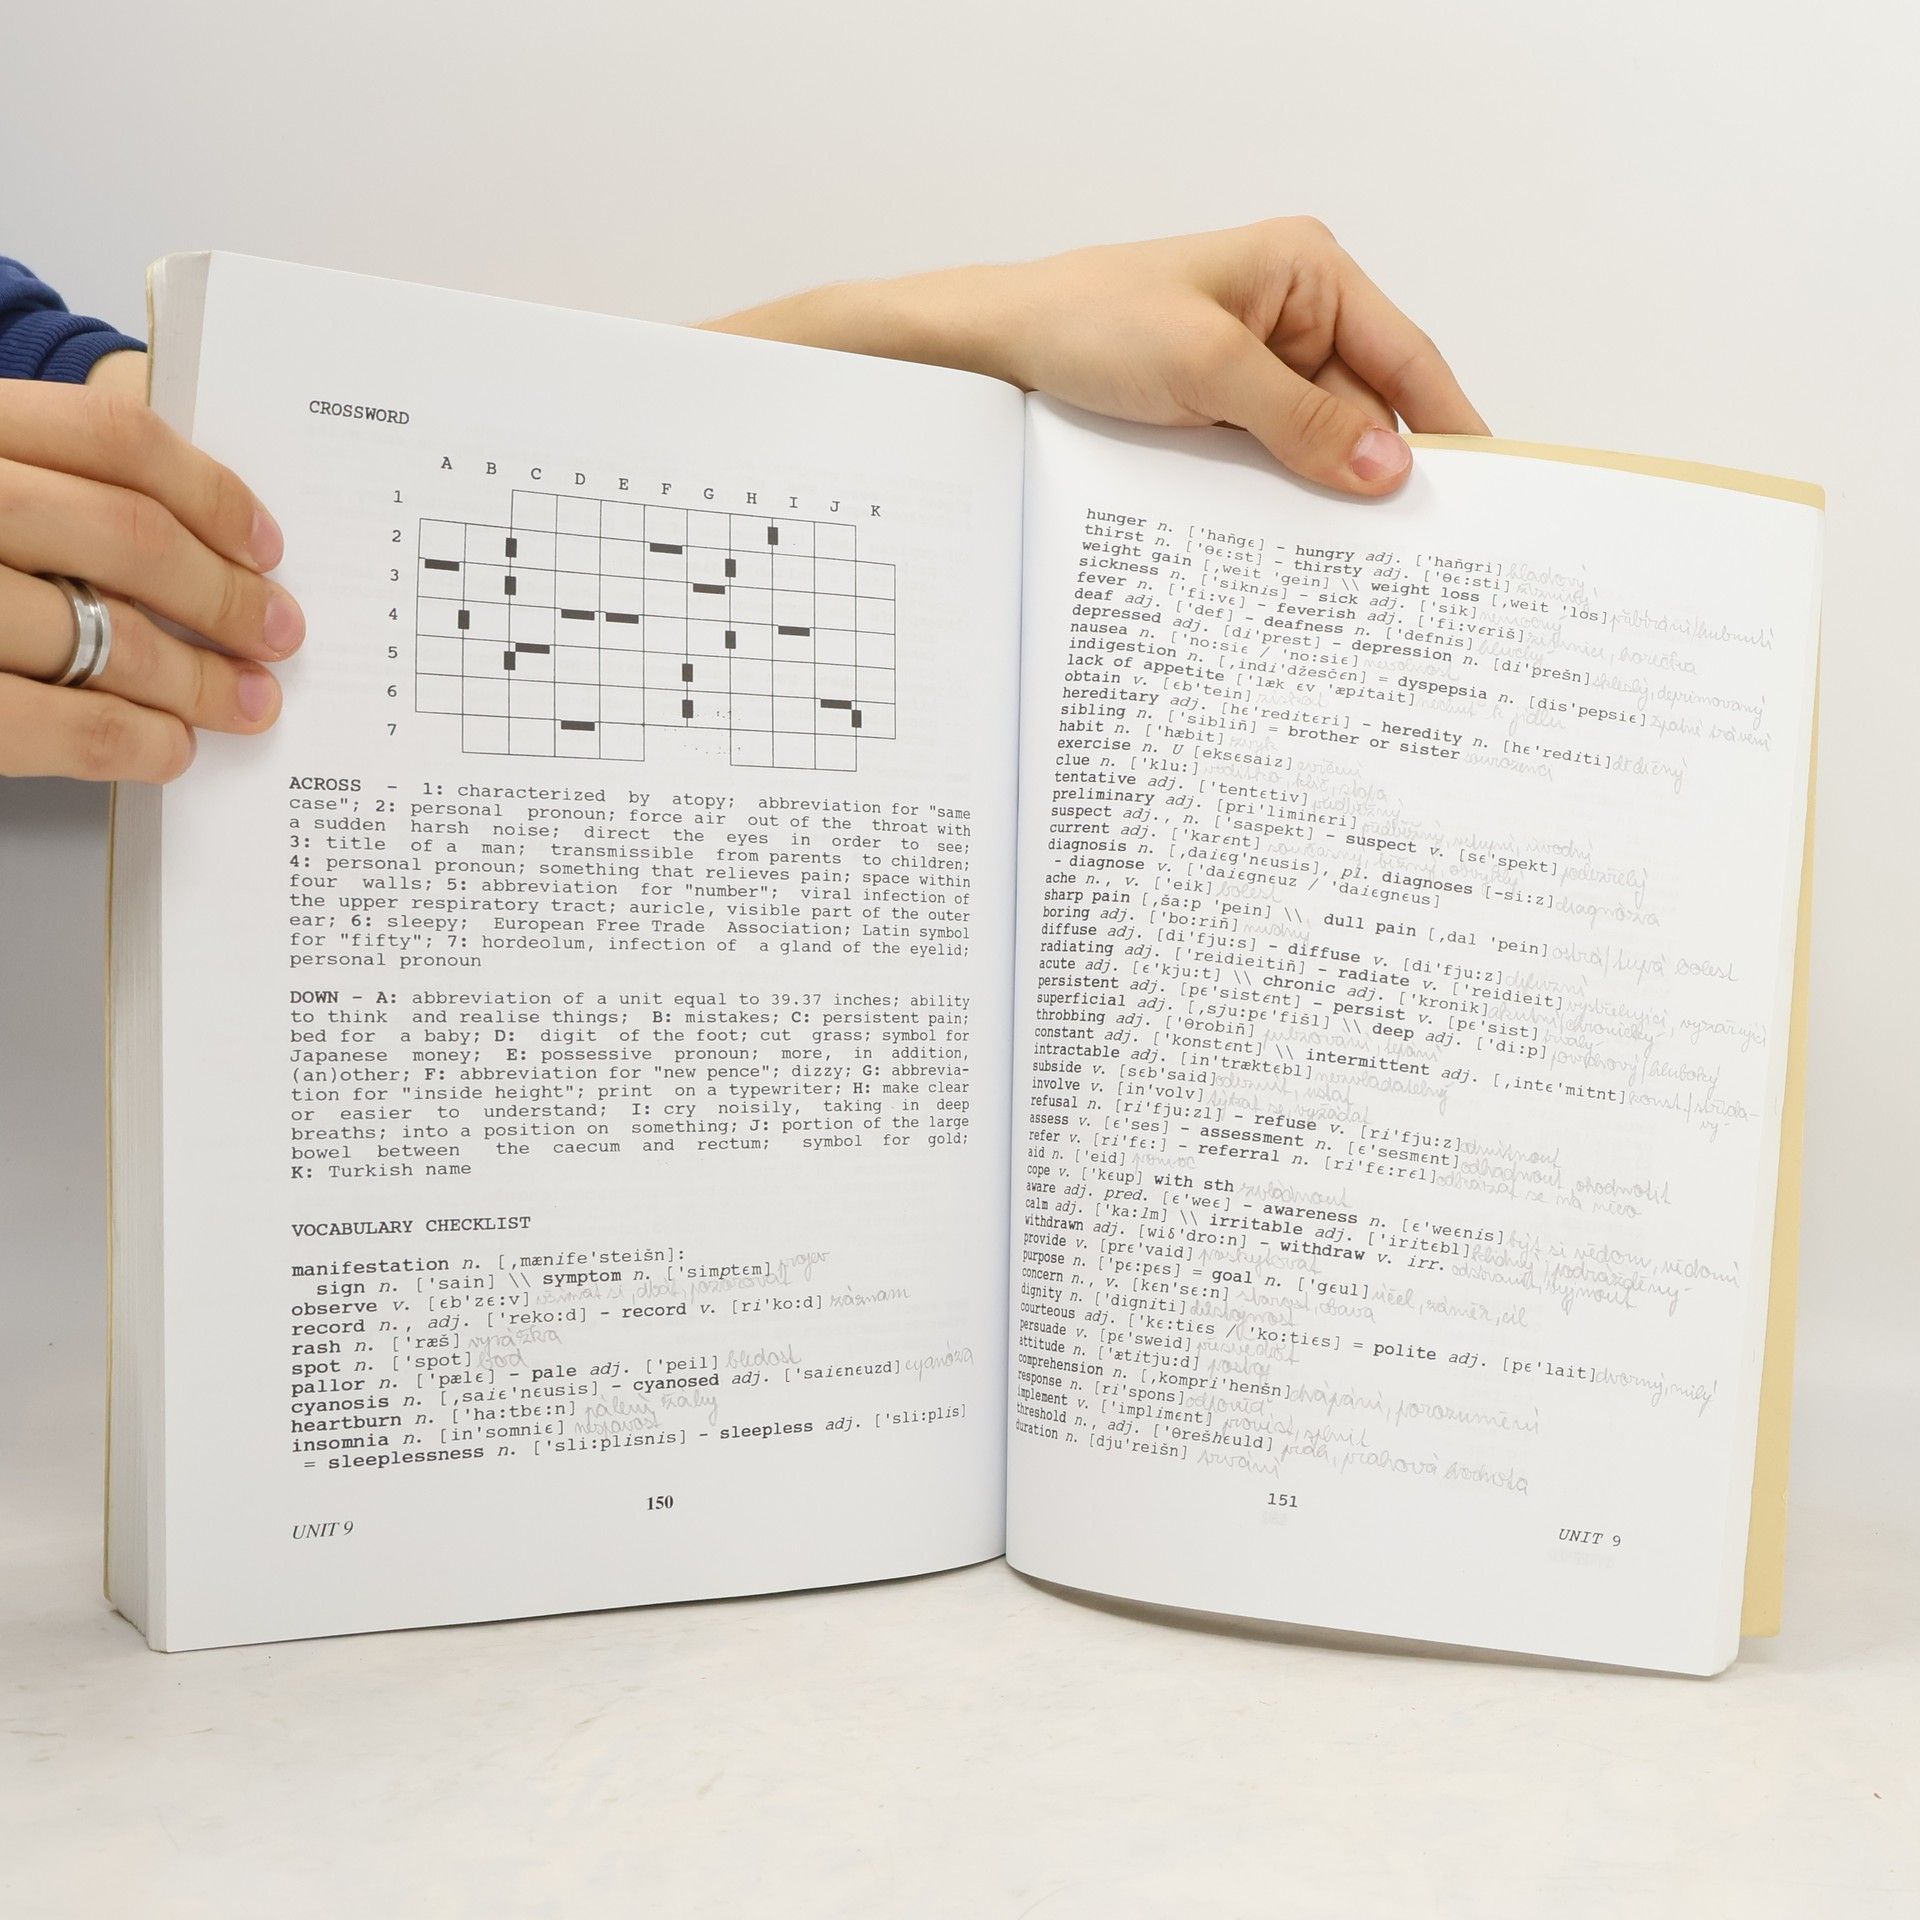 CROSSWORD
A B C D E F G H I J K
1
2
3
4
5
6
7
ACROSS – 1: characterized by atopy; abbreviation for "same
case"; 2: personal pronoun; force air out of the throat with
a sudden harsh noise; direct the eyes in order to see;
3: title of a man; transmissible from parents to children;
4: personal pronoun; something that relieves pain; space within
four walls; 5: abbreviation for "number"; viral infection of
the upper respiratory tract; auricle, visible part of the outer
ear; 6: sleepy; European Free Trade Association; Latin symbol
for "fifty"; 7: hordeolum, infection of a gland of the eyelid;
personal pronoun
DOWN – A: abbreviation of a unit equal to 39.37 inches; ability
to think and realise things; B: mistakes; C: persistent pain;
bed for a baby; D: digit of the foot; cut grass; symbol for
Japanese money; E: possessive pronoun; more, in addition,
(an)other; F: abbreviation for "new pence"; dizzy; G: abbrevia-
tion for "inside height"; print on a typewriter; H: make clear
or easier to understand; I: cry noisily, taking in deep
breaths; into a position on something; J: portion of the large
bowel between the caecum and rectum; symbol for gold;
K: Turkish name
VOCABULARY CHECKLIST
manifestation n. [,mænife'steišn]:
sign n. ['sain] \\ symptom n. ['simptєm] projev
observe v. [єb'zє:v] všímat si, dbát, pozorovat
record n., adj. ['reko:d] – record v. [ri'ko:d] záznam
rash n. ['ræš] vyrážka
spot n. ['spot] bod
pallor n. ['pælє] – pale adj. ['peil] bledost
cyanosis n. [,saiє'nєusis] – cyanosed adj. ['saiєnєuzd] cyanóza
heartburn n. ['ha:tbє:n] pálení žáhy
insomnia n. [in'somniє] nespavost
= sleeplessness n. ['sli:plisnis] – sleepless adj. ['sli:plis]
150
UNIT 9
hunger n. ['hañgє] – hungry adj. ['hañgri] hladový
thirst n. ['θє:st] – thirsty adj. ['θє:sti] žíznivý
weight gain [,weit 'gein] \\ weight loss [,weit 'los] přibírání/hubnutí
sickness n. ['siknis] – sick adj. ['sik] nemocný
fever n. ['fi:vє] – feverish adj. ['fi:vєriš] zimnice, horečka
deaf adj. ['def] – deafness n. ['defnis] hluchý
depressed adj. [di'prest] – depression n. [di'prešn] skleslý, deprimovaný
nausea n. ['no:siє / 'no:siє] nevolnost
indigestion n. [,indi'džesčєn] = dyspepsia n. [dis'pepsiє] špatné trávení
lack of appetite ['læk єv 'æpitait] nechuť k jídlu
obtain v. [єb'tein] získat
hereditary adj. [hє'reditєri] – heredity n. [hє'rediti] dědičný
sibling n. ['sibliñ] = brother or sister sourozenci
habit n. ['hæbit] zvyk
exercise n. U [eksєsaiz] cvičení
clue n. ['klu:] vodítko, klíč, stopa
tentative adj. ['tentєtiv] předběžný
preliminary adj. [pri'liminєri] předběžný, vstupní, úvodní
suspect adj., n. ['saspekt] – suspect v. [sє'spekt] podezřelý
current adj. ['karєnt] současný, běžný, obvyklý
diagnosis n. [,daiєg'nєusis], pl. diagnoses [-si:z] diagnóza
- diagnose v. ['daiєgnєuz / 'daiєgnєus]
ache n., v. ['eik] bolest
sharp pain [,ša:p 'pein] \\ dull pain [,dal 'pein] ostrá/tupá bolest
boring adj. ['bo:riñ] nudný
diffuse adj. [di'fju:s] – diffuse v. [di'fju:z] difuzní
radiating adj. ['reidieitiñ] – radiate v. ['reidieit] vystřelující, vyzařující
acute adj. [є'kju:t] \\ chronic adj. ['kronik] akutní/chronický
persistent adj. [pє'sistєnt] – persist v. [pє'sist] trvalý
superficial adj. [,sju:pє'fišl] \\ deep adj. ['di:p] povrchový/hluboký
throbbing adj. ['θrobiñ] pulzování, tepání
constant adj. ['konstєnt] \\ intermittent adj. [,intє'mitnt] konst./střída-
vý
intractable adj. [in'træktєbl] nezvladatelný
subside v. [sєb'said] odeznít, ustat
involve v. [in'volv] týkat se, vyžádat
refusal n. [ri'fju:zl] – refuse v. [ri'fju:z] odmítnout
assess v. [є'ses] – assessment n. [є'sesmєnt] odhadnout, ohodnotit
refer v. [ri'fє:] – referral n. [ri'fє:rєl] odkázat se na něco
aid n. ['eid] pomoc
cope v. ['kєup] with sth zvládnout
aware adj. pred. [є'weє] – awareness n. [є'weєnis] být si vědom, vědomí
calm adj. ['ka:lm] \\ irritable adj. ['iritєbl] klidný, podrážděný
withdrawn adj. [wiδ'dro:n] – withdraw v. irr. odstranit, vyjmout
provide v. [prє'vaid] poskytovat
purpose n. ['pє:pєs] = goal n. ['gєul] účel, záměr, cíl
concern n., v. [kєn'sє:n] starost, obava
dignity n. ['digniti] důstojnost
courteous adj. ['kє:tiєs / 'ko:tiєs] = polite adj. [pє'lait] dvorný, milý
persuade v. [pє'sweid] přesvědčit
attitude n. ['ætitju:d] postoj
comprehension n. [,kompri'henšn] chápání, porozumění
response n. [ri'spons] odpověď
implement v. ['implimєnt] provést, splnit
threshold n., adj. ['θrešhєuld] práh, prahová hodnota
duration n. [dju'reišn] trvání
151
UNIT 9